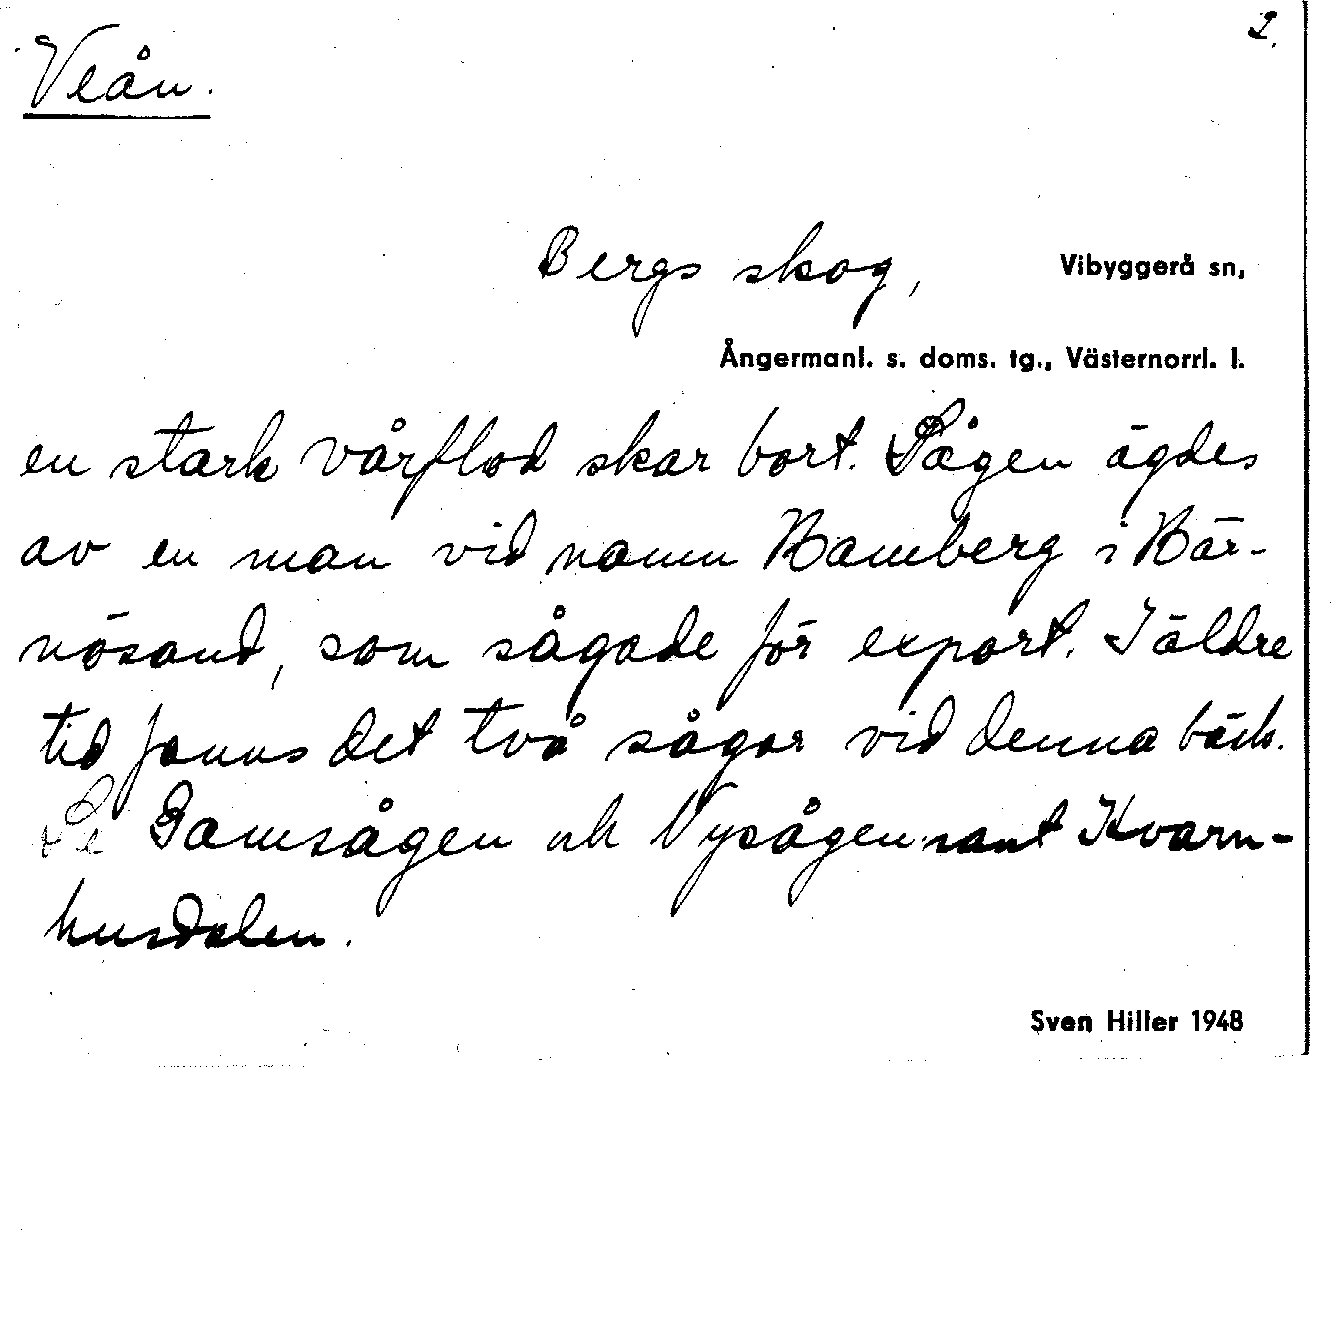 2.
Veån.
Bergs skog, Vibyggerå sn,
Ångermanl. s. doms. tg., Västernorrl. l.
en stark vårflod skar bort. Sågen ägdes
av en man vid namn Hamberg i Här-
nösand, som sågade för export. I äldre
tid fanns det två sågar vid denna bäck.
Se Gamsågen och Nysågen samt Kvarn-
husdalen.
Sven Hiller 1948